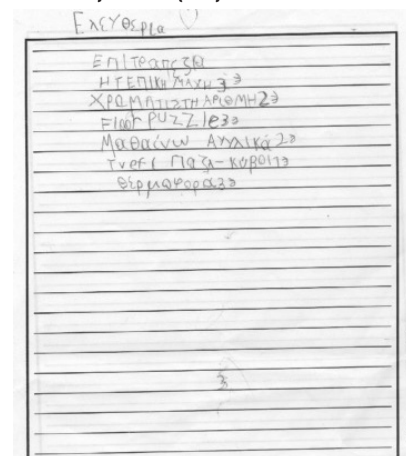 Ελευθερία
Επιτραπέζια
ΗΤΕΠΙΚΗ ΜΑΧΗ 3
ΧΡΩΜΑΤΙΣΤΗ ΑΡΙΘΜΗ 2
Floor PUZZle 3
Μαθαίνω Αγγλικά 2
Παζλ-κύβοι
Θερμοφόρα 3
3